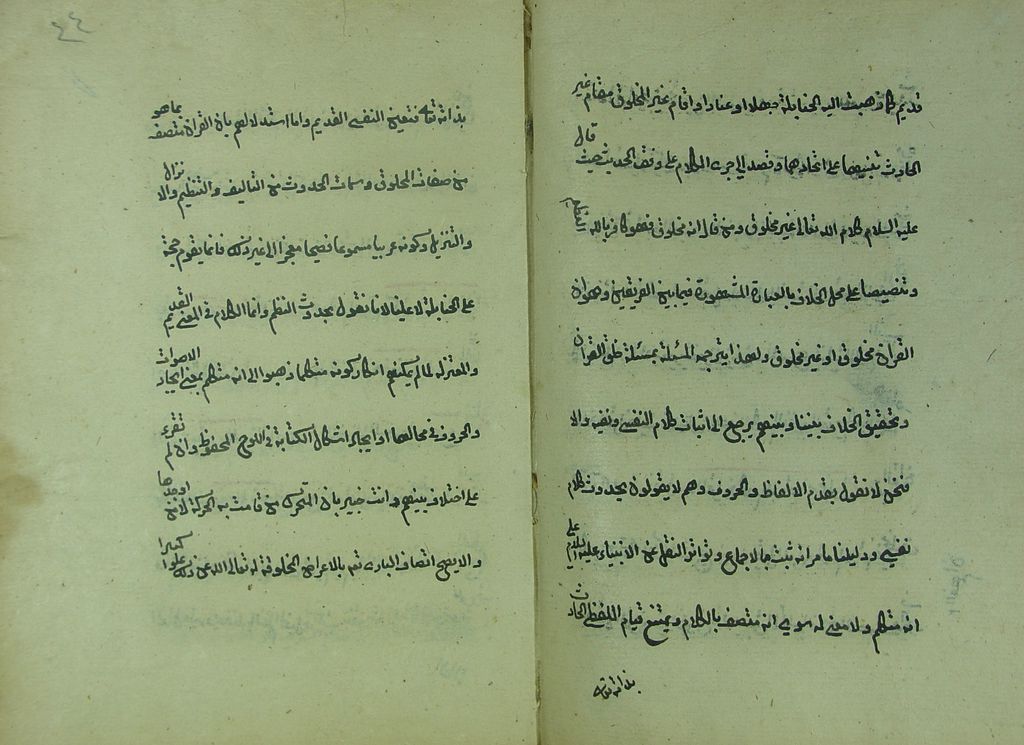 قديم كما ذهبت اليه الحنابلة جهلا او عنادا واقام غير المخلوق مقام غير
الحادث تنبيها على اتحادهما وقصد الى جرى الكلام على وفق الحديث حيث قال
عليه السلام كلام الله تعالى غير مخلوق ومن قال انه مخلوق فهو كافر بالله العظيم
وتنصيصا على محل الخلاف بالعبارة المشهورة فيما بين الفريقين وهو ان
القران مخلوق او غير مخلوق ولهذا يترجم المسئلة بمسئلة خلق القران
وتحقيق الخلاف بيننا وبينهم يرجع الى اثبات كلام النفسى ونفيه والا
فنحن لا نقول بقدم الالفاظ والحروف وهم لا يقولون بحدوث كلام
نفسى ودليلنا ما مر انه ثبت بالاجماع وتواتر النقل عن الانبياء عليهم السلام
انه متكلم ولا معنى له سوى انه متصف بالكلام ويمتنع قيام اللفظى الحادث
بذاته تعالى
٤٤
بذاته تعالى فتعين النفسى القديم واما استدلالهم بان القران متصف بما هو
من صفات المخلوق وسمات الحدوث من التاليف والتنظيم والانزال
والتنزيل وكونه عربيا مسموعا فصيحا معجزا الى غير ذلك فانما يقوم حجة
على الحنابلة لا علينا لانا نقول بحدوث النظم وانما الكلام فى المعنى القديم
والمعتزلة لما لم يمكنهم انكار كونه متكلما ذهبوا الى انه متكلم بمعنى ايجاد الاصوات
والحروف فى محالها او ايجاد اشكال الكتابة فى اللوح المحفوظ وان لم تقرء
على اختلاف بينهم وانت خبير بان المتحرك من قامت به الحركة لا من اوجدها
والا يصح اتصاف البارى تع بالاعراض المخلوقة له تعالى الله عن ذلك علوا كبيرا